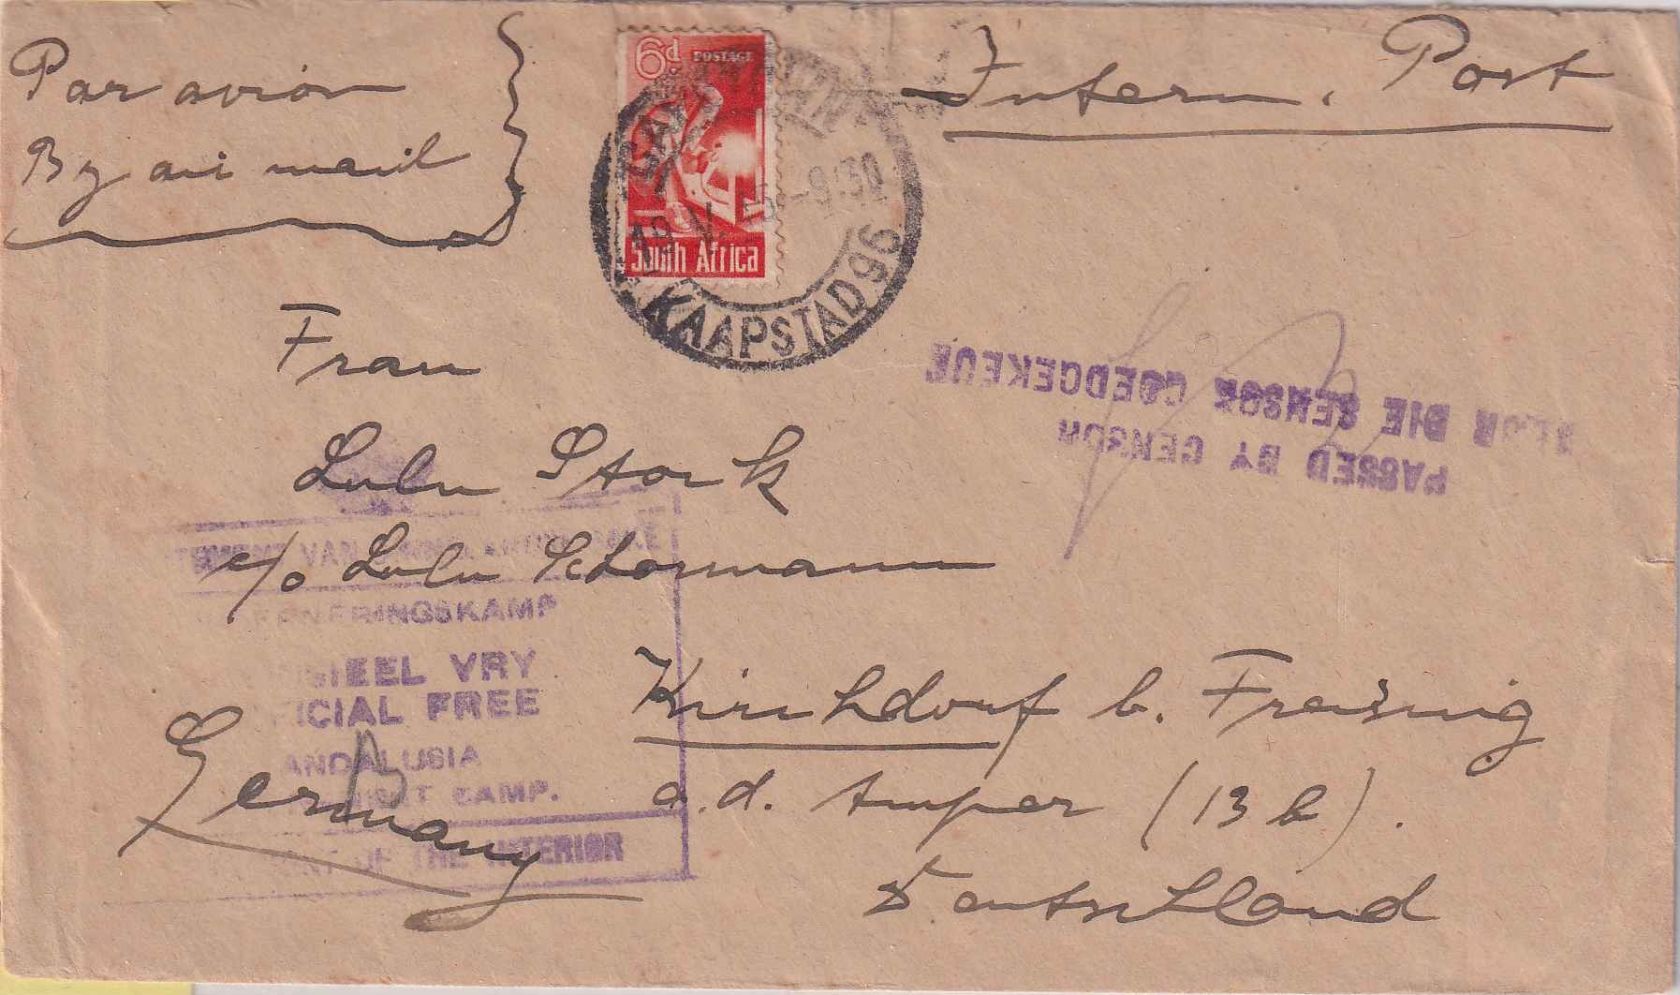 Par avion
By air mail
Intern. Post
6d POSTAGE
South Africa
19 V 45 -9.30
KAAPSTAD 96
PASSED BY CENSOR
DEUR DIE SENSOR GOEDGEKEUR
Frau
Lulu Stork
c/o Lulu Schormann
Kirchdorf b. Freising
a.d. Amper (13 b).
Deutschland
Germany
VAN
ERINGSKAMP
SIEEL VRY
ICIAL FREE
ANDALUSIA
CAMP.
OF THE INTERIOR